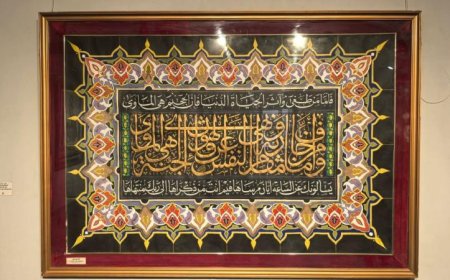 فأما من طغى وآثر الحياة الدنيا فإن الجحيم هي المأوى
وأما من خاف مقام ربه ونهى النفس عن الهوى فإن الجنة هي المأوى
يسألونك عن الساعة أيان مرساها فيم أنت من ذكراها إلى ربك منتهاها